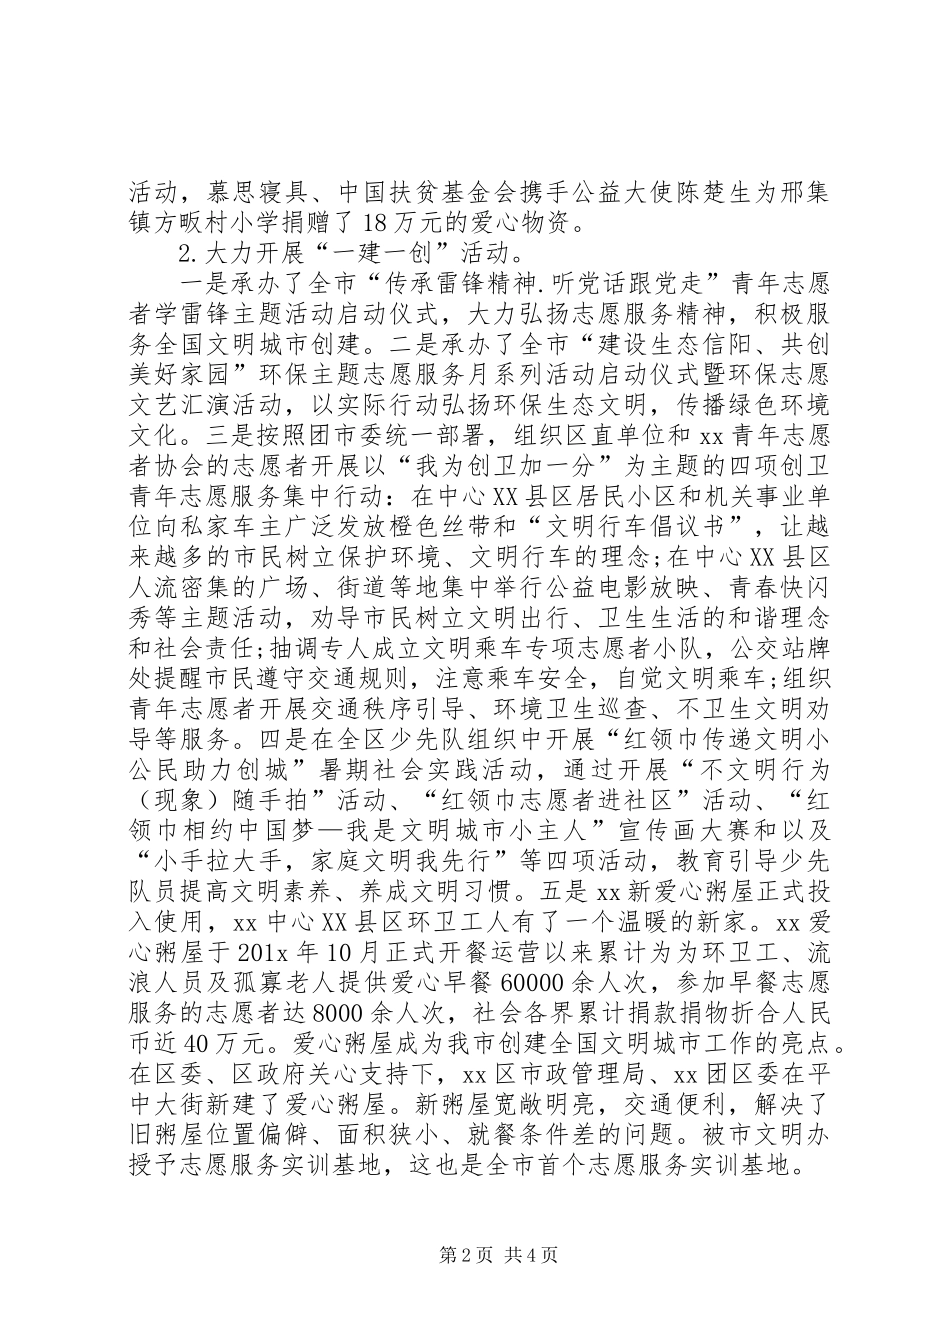 活动，慕思寝具、中国扶贫基金会携手公益大使陈楚生为邢集
镇方畈村小学捐赠了 18 万元的爱心物资。
2.大力开展“一建一创”活动。
一是承办了全市“传承雷锋精神.听党话跟党走”青年志愿
者学雷锋主题活动启动仪式，大力弘扬志愿服务精神，积极服
务全国文明城市创建。二是承办了全市“建设生态信阳、共创
美好家园”环保主题志愿服务月系列活动启动仪式暨环保志愿
文艺汇演活动，以实际行动弘扬环保生态文明，传播绿色环境
文化。三是按照团市委统一部署，组织区直单位和 xx 青年志愿
者协会的志愿者开展以“我为创卫加一分”为主题的四项创卫
青年志愿服务集中行动：在中心 XX 县区居民小区和机关事业单
位向私家车主广泛发放橙色丝带和“文明行车倡议书”，让越
来越多的市民树立保护环境、文明行车的理念;在中心 XX 县区
人流密集的广场、街道等地集中举行公益电影放映、青春快闪
秀等主题活动，劝导市民树立文明出行、卫生生活的和谐理念
和社会责任;抽调专人成立文明乘车专项志愿者小队，公交站牌
处提醒市民遵守交通规则，注意乘车安全，自觉文明乘车;组织
青年志愿者开展交通秩序引导、环境卫生巡查、不卫生文明劝
导等服务。四是在全区少先队组织中开展“红领巾传递文明小
公民助力创城”暑期社会实践活动，通过开展“不文明行为
（现象）随手拍”活动、“红领巾志愿者进社区”活动、“红
领巾相约中国梦—我是文明城市小主人”宣传画大赛和以及
“小手拉大手，家庭文明我先行”等四项活动，教育引导少先
队员提高文明素养、养成文明习惯。五是 xx 新爱心粥屋正式投
入使用，xx 中心 XX 县区环卫工人有了一个温暖的新家。xx 爱
心粥屋于 201x 年 10 月正式开餐运营以来累计为为环卫工、流
浪人员及孤寡老人提供爱心早餐 60000 余人次，参加早餐志愿
服务的志愿者达 8000 余人次，社会各界累计捐款捐物折合人民
币近 40 万元。爱心粥屋成为我市创建全国文明城市工作的亮点。
在区委、区政府关心支持下，xx 区市政管理局、xx 团区委在平
中大街新建了爱心粥屋。新粥屋宽敞明亮，交通便利，解决了
旧粥屋位置偏僻、面积狭小、就餐条件差的问题。被市文明办
授予志愿服务实训基地，这也是全市首个志愿服务实训基地。
第 2 页 共 4 页